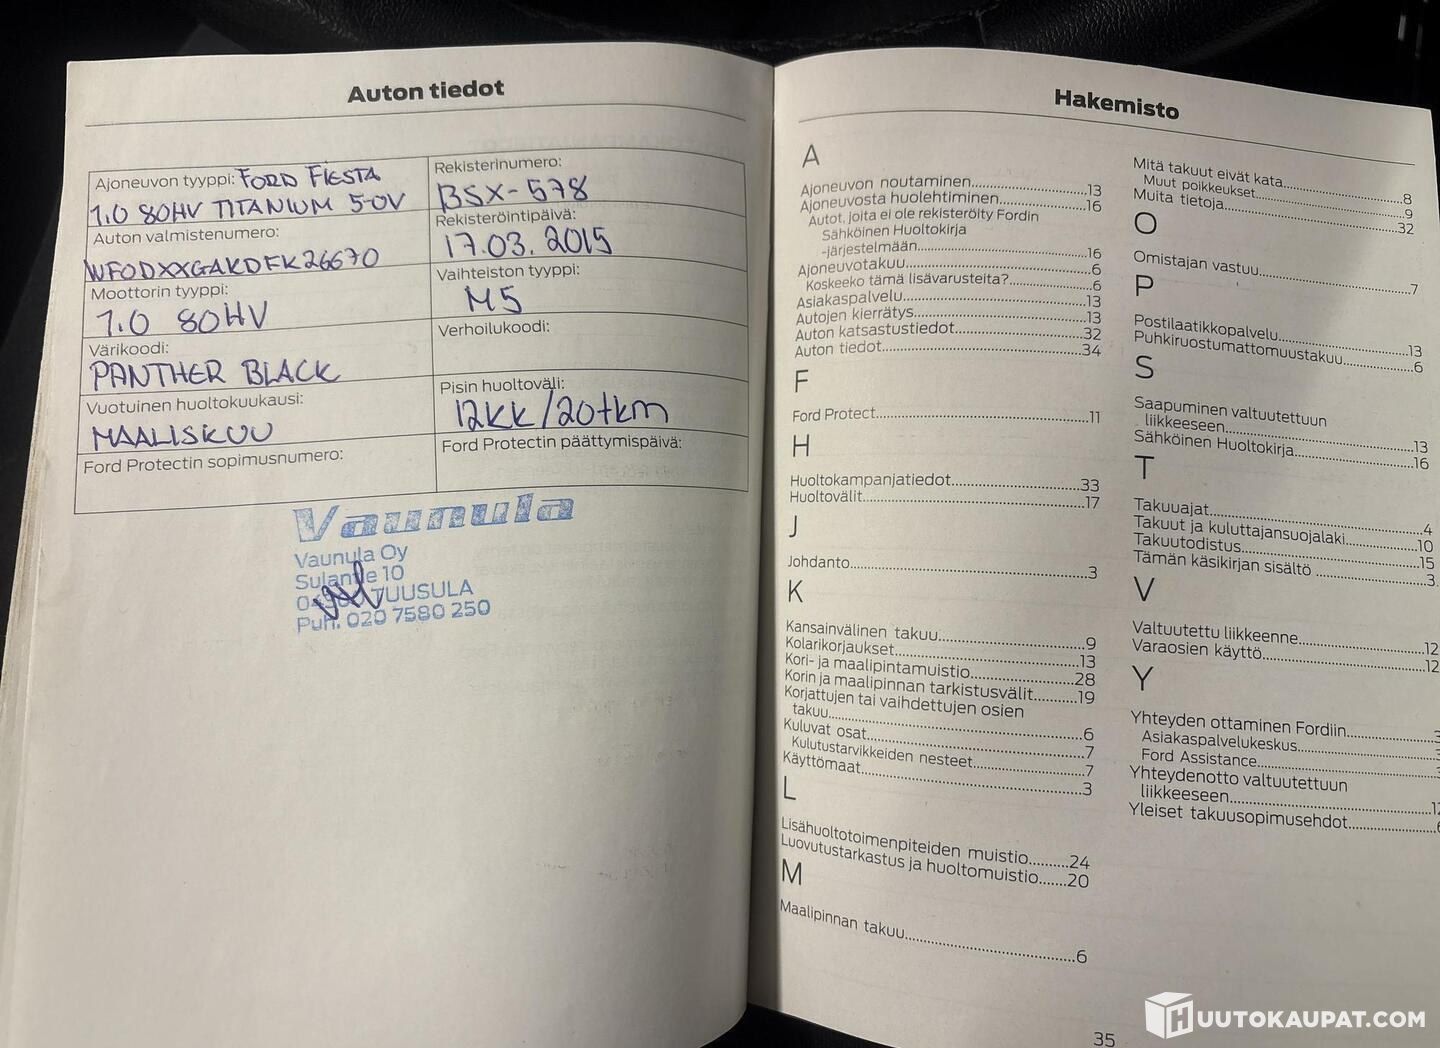 Auton tiedot
Ajoneuvon tyyppi: FORD FIESTA
1.0 80HV TITANIUM 5-OV
Rekisterinumero:
BSX-578
Auton valmistenumero:
WF0DXXGAKDFK26670
Rekisteröintipäivä:
17.03.2015
Moottorin tyyppi:
1.0 80HV
Vaihteiston tyyppi:
M5
Värikoodi:
PANTHER BLACK
Verhoilukoodi:
Vuotuinen huoltokuukausi:
MAALISKUU
Pisin huoltoväli:
12kk/20tkm
Ford Protectin sopimusnumero:
Ford Protectin päättymispäivä:
Vaunula
Vaunula Oy
10
TUUSULA
Puh. 020 7580 250
Hakemisto
A
Ajoneuvon noutaminen.....13
Ajoneuvosta huolehtiminen.....16
Autot, joita ei ole rekisteröity Fordin
Sähköinen Huoltokirja
-järjestelmään.....16
Ajoneuvotakuu.....6
Koskeeko tämä lisävarusteita?.....6
Asiakaspalvelu.....13
Autojen kierrätys.....13
Auton katsastustiedot.....32
Auton tiedot.....34
F
Ford Protect.....11
H
Huoltokampanjatiedot.....33
Huoltovälit.....17
J
Johdanto.....3
K
Kansainvälinen takuu.....9
Kolarikorjaukset.....13
Kori- ja maalipintamuistio.....28
Korin ja maalipinnan tarkistusvälit.....19
Korjattujen tai vaihdettujen osien
takuu.....6
Kuluvat osat.....7
Kulutustarvikkeiden nesteet.....7
Käyttömaat.....3
L
Lisähuoltotoimenpiteiden muistio.....24
Luovutustarkastus ja huoltomuistio.....20
M
Maalipinnan takuu.....6
Mitä takuut eivät kata.....8
Muut poikkeukset.....9
Muita tietoja.....32
O
Omistajan vastuu.....7
P
Postilaatikkopalvelu.....13
Puhkiruostumattomuustakuu.....6
S
Saapuminen valtuutettuun
liikkeeseen.....13
Sähköinen Huoltokirja.....16
T
Takuuajat.....4
Takuut ja kuluttajansuojalaki.....10
Takuutodistus.....15
Tämän käsikirjan sisältö.....3
V
Valtuutettu liikkeenne.....12
Varaosien käyttö.....12
Y
Yhteyden ottaminen Fordiin.....
Asiakaspalvelukeskus.....
Ford Assistance.....
Yhteydenotto valtuutettuun
liikkeeseen.....
Yleiset takuusopimusehdot.....
35
HUUTOKAUPAT.COM